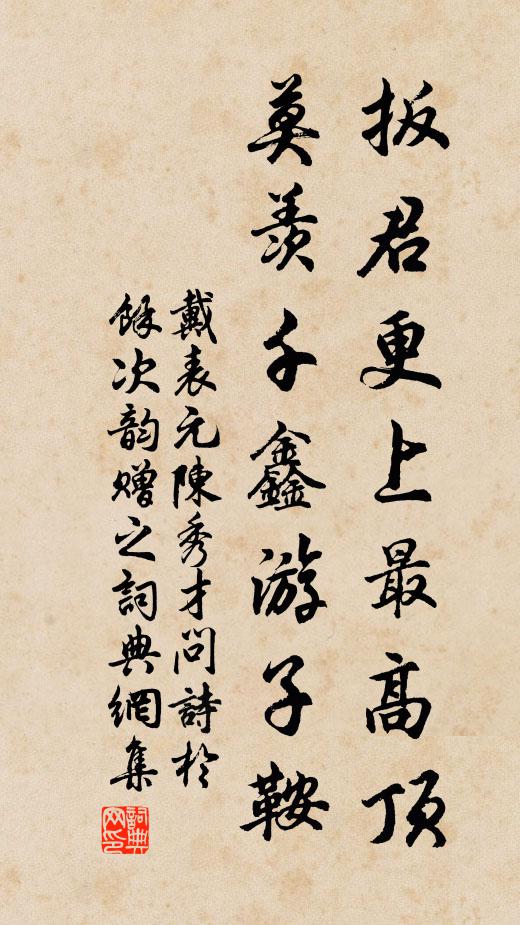 扳君更上最高顶
莫羡千鑫游子鞍
戴表元陳秀才問詩於
餘次韵赠之詞典網集
詞典网印